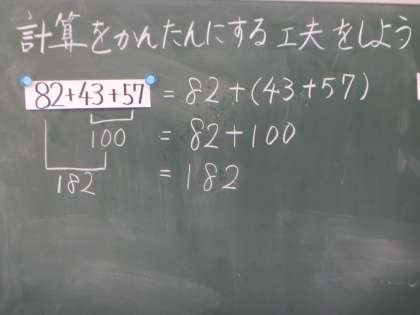 計算をかんたんにする工夫をしよう
82+43+57 = 82+(43+57)
100 = 82+100
182 = 182